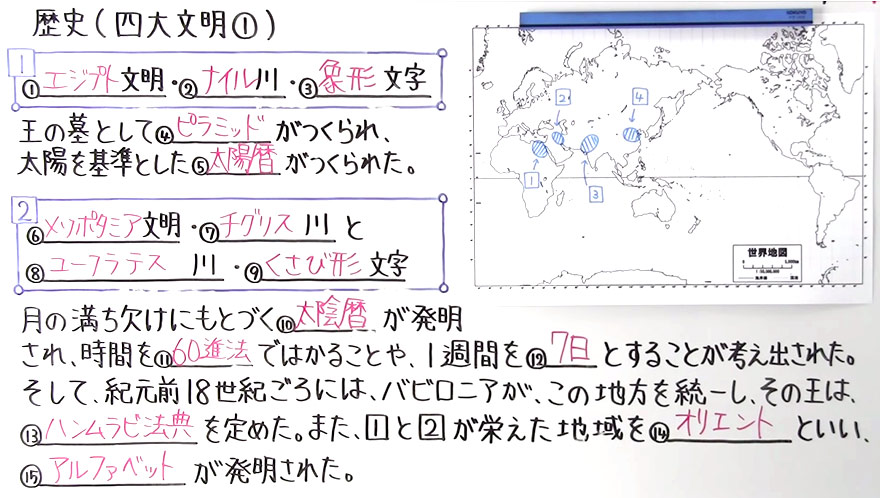 歴史(四大文明①)
1
①エジプト文明・②ナイル川・③象形文字
王の墓として④ピラミッドがつくられ、
太陽を基準とした⑤太陽暦がつくられた。
2
⑥メソポタミア文明・⑦チグリス川と
⑧ユーフラテス川・⑨くさび形文字
月の満ち欠けにもとづく⑩太陰暦が発明
され、時間を⑪60進法ではかることや、1週間を⑫7日とすることが考え出された。
そして、紀元前18世紀ごろには、バビロニアが、この地方を統一し、その王は、
⑬ハンムラビ法典を定めた。また、1と2が栄えた地域を⑭オリエントといい、
⑮アルファベットが発明された。
2
4
1
3
世界地図